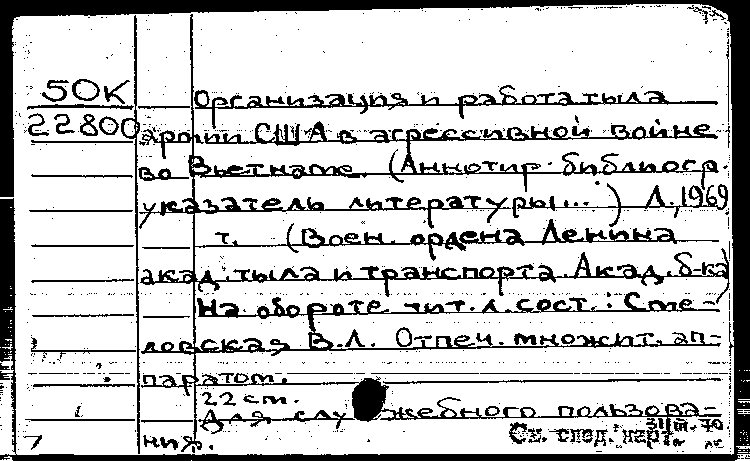 50К
Организация и работа тыла
22800 армии США в агрессивной войне
во Вьетнаме. (Аннотир. библиогр.
указатель литературы...) Л., 1969
т. (Воен. ордена Ленина
акад. тыла и транспорта. Акад. б-ка)
На обороте тит. л. сост.: Сме-
ловская В.Л. Отпеч. множит. ап-
паратом.
22 см.
Для служебного пользова-
ния.
31/III-70
См. след. карт.